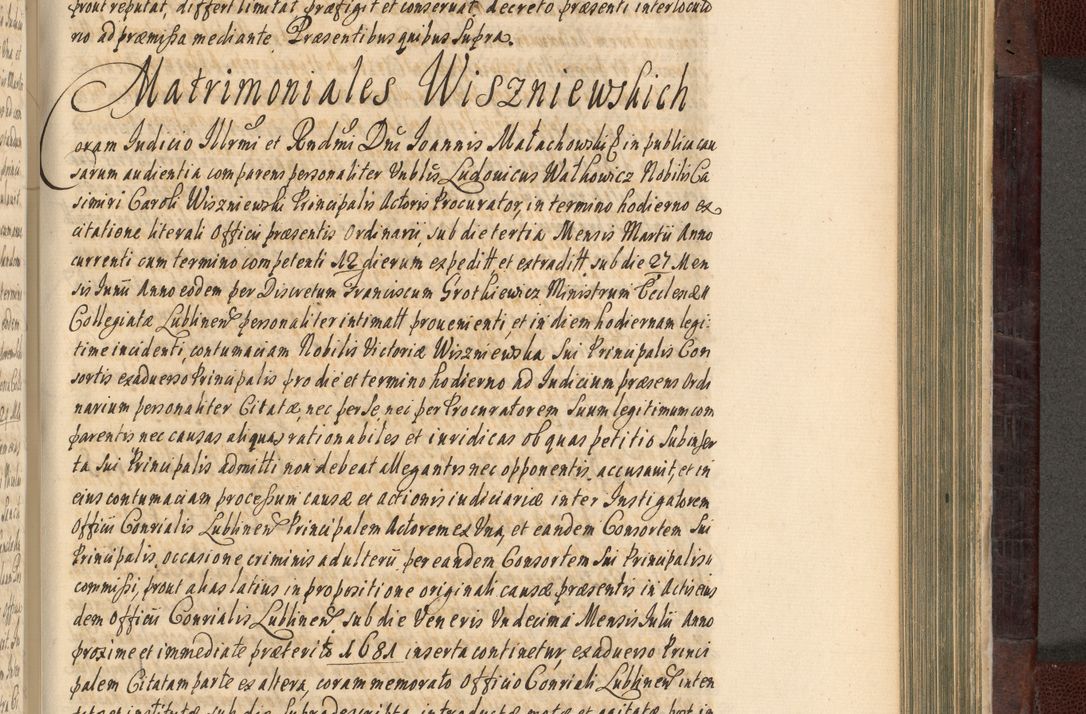 prout reputat, differt limitat præfigit et conservat decreto præsenti interlocuto
rio ad præmissa mediante Præsentibus quibus Supra.
Matrimoniales Wiszniewskich
Coram Iudicio Illrmi et Rndmi Dni Ioannis Małachowski E in publica cau
sarum audientia comparens personaliter Vnblis Ludovicus Wałkowicz Nobilis Ca
simiri Caroli Wiszniewski Principalis Actoris Procurator, in termino hodierno ex
citatione literali Officii præsentis Ordinarii, sub die tertia Mensis Martii Anno
currenti cum termino competenti 12 dierum expeditt et extraditt sub die 27 Men
sis Iunii Anno eodem per Discretum Franciscum Grotkiewicz Ministrum Ecclesiæ
Collegiatæ Lublinen personaliter intimatt provenienti et in diem hodiernam legi:
time incidenti, contumaciam Nobilis Victoriæ Wiszniewska Sui Principalis Con
sortis exadverso Principalis pro die et termino hodierno ad Iudicium præsens Ordi
narium personaliter Citatæ, nec per Se nec per Procuratorem Suum legitimum com
parentis nec causas aliquas rationabiles et iuridicas ob quas petitio Subinser
ta Sui Principalis admitti non debeat allegantis nec opponentis, accusavit, et in
eius contumaciam processum causæ et actionis iudiciariæ inter Instigatorem
Officii Consialis Lublinen Principalem Actorem ex Vna, et eandem Consortem Sui
Principalis, occasione criminis adulterii, per eandem Consortem Sui Principalis
commissi, prout alias latius in propositione originali causæ præsentis in Actis eius
dem Officii Consialis Lublinen sub die Veneris Vndecima Mensis Iulii Anno
proxime et immediate præterito 1681 inserta continetur, exadverso Princi
palem Citatam parte ex altera, coram memorato Officio Consiali Lublinen inten